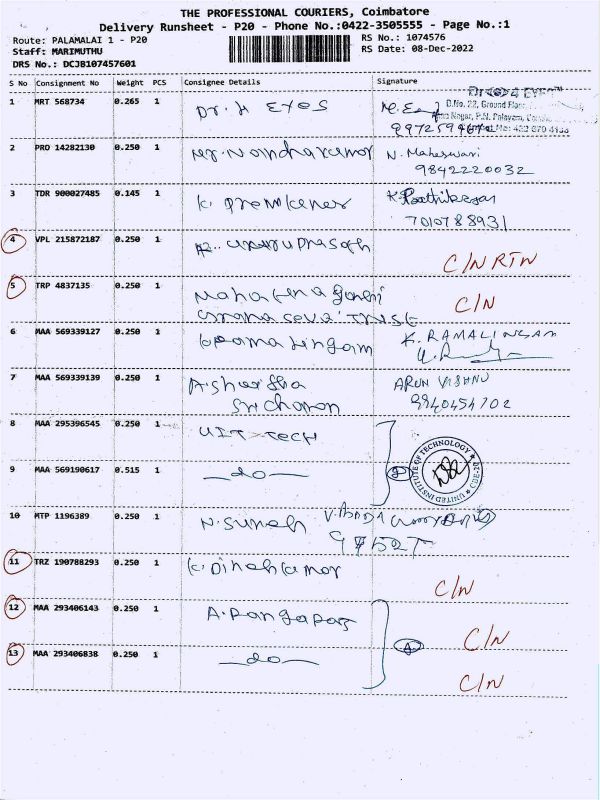 THE PROFESSIONAL COURIERS, Coimbatore
Delivery Runsheet - P20 - Phone No.:0422-3505555 - Page No.:1
Route: PALAMALAI 1 - P20
RS No.: 1074576
Staff: MARIMUTHU
RS Date: 08-Dec-2022
DRS No.: DCJB107457601
S No Consignment No Weight PCS Consignee Details Signature
1 MRT 568734 0.265 1 Dr. H Eyes
D.No. 22, Ground
Nagar, P.N. Palayam,
2 PRO 14282130 0.250 1 N. Maheswari
9842220032
3 TDR 900027485 0.145 1 K. K.
7010788931
4 VPL 215872187 0.250 1
C/N RTN
5 TRP 4837135 0.250 1 C/N
6 MAA 569339127 0.250 1 K. RAMALINGAM
7 MAA 569339139 0.250 1 ARUN VISHNU
9940454702
8 MAA 295396545 0.250 1 UIT TECH
UNITED INSTITUTE OF TECHNOLOGY
9 MAA 569190617 0.515 1 -do-
10 MTP 1196389 0.250 1 N. Suresh
11 TRZ 190788293 0.250 1 K. Dineshkumar
C/N
12 MAA 293406143 0.250 1 A. C/N
13 MAA 293406838 0.250 1 -do-
C/N